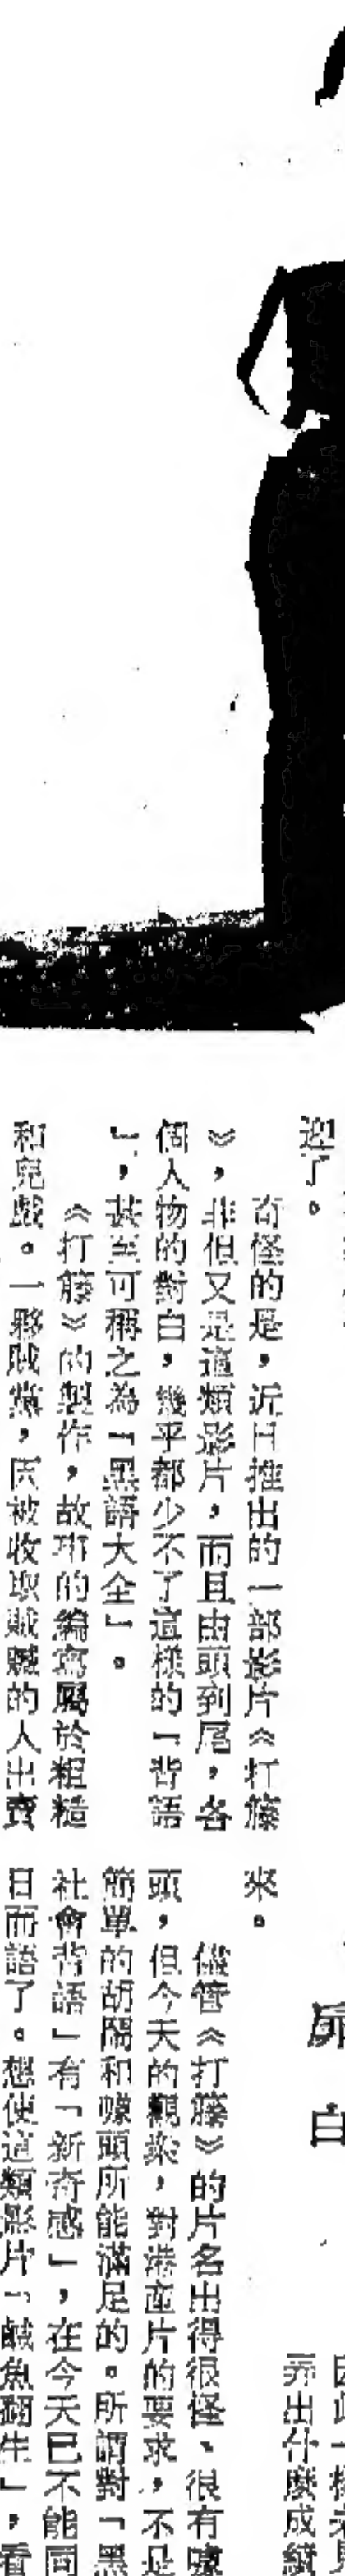 迎了。
奇怪的是，近日推出的一部影片《打籐
》，非但又是這類影片，而且由頭到尾，各
個人物的對白，幾乎都少不了這樣的「背語
」，甚至可稱之為「黑語大全」。
《打籐》的製作，故事的編寫屬於粗糙
和兒戲。一夥賊黨，因被收取賊贓的人出賣
昴白
弄出什麼成績
來。
儘管《打籐》的片名出得很怪、很有噱
頭，但今天的觀衆，對港產片的要求，不是
簡單的胡鬧和噱頭所能滿足的。所謂對「黑
社會背語」有「新奇感」，在今天已不能同
日而語了。想使這類影片「鹹魚翻生」，看